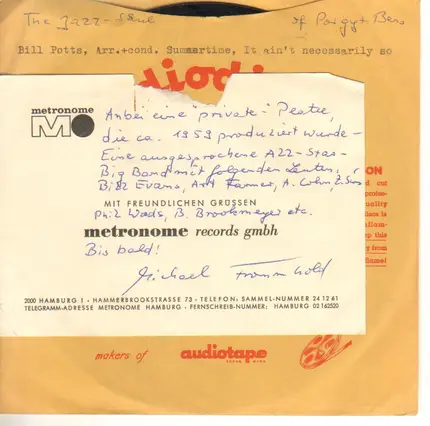 The Jazz-Soul of Porgy + Bess
Bill Potts, Arr.+cond. Summertime, It ain't necessarily so
metronome
Anbei eine "private" Platte,
die ca. 1959 produziert wurde -
Eine ausgesprochene All-Star-
Big Band mit folgenden Leuten,
Bill Evans, Art Farmer, A. Cohn, Z. Sims
MIT FREUNDLICHEN GRÜSSEN
Phil Woods, B. Brookmeyer etc.
metronome records gmbh
Bis bald!
Michael
2000 HAMBURG 1 · HAMMERBROOKSTRASSE 73 · TELEFON: SAMMEL-NUMMER 24 12 61
TELEGRAMM-ADRESSE METRONOME HAMBURG · FERNSCHREIB-NUMMER: HAMBURG 02 162520
makers of audiotape